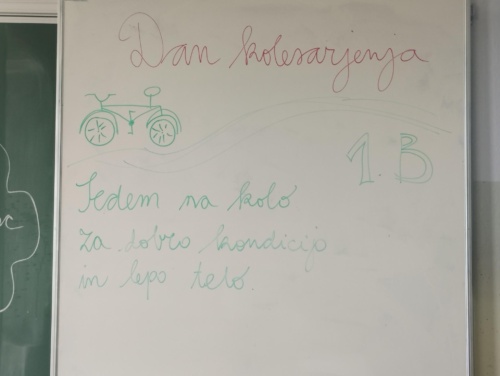 Dan kolesarjenja
1. B
Sedem na kolo
za dobro kondicijo
in lepo telo.